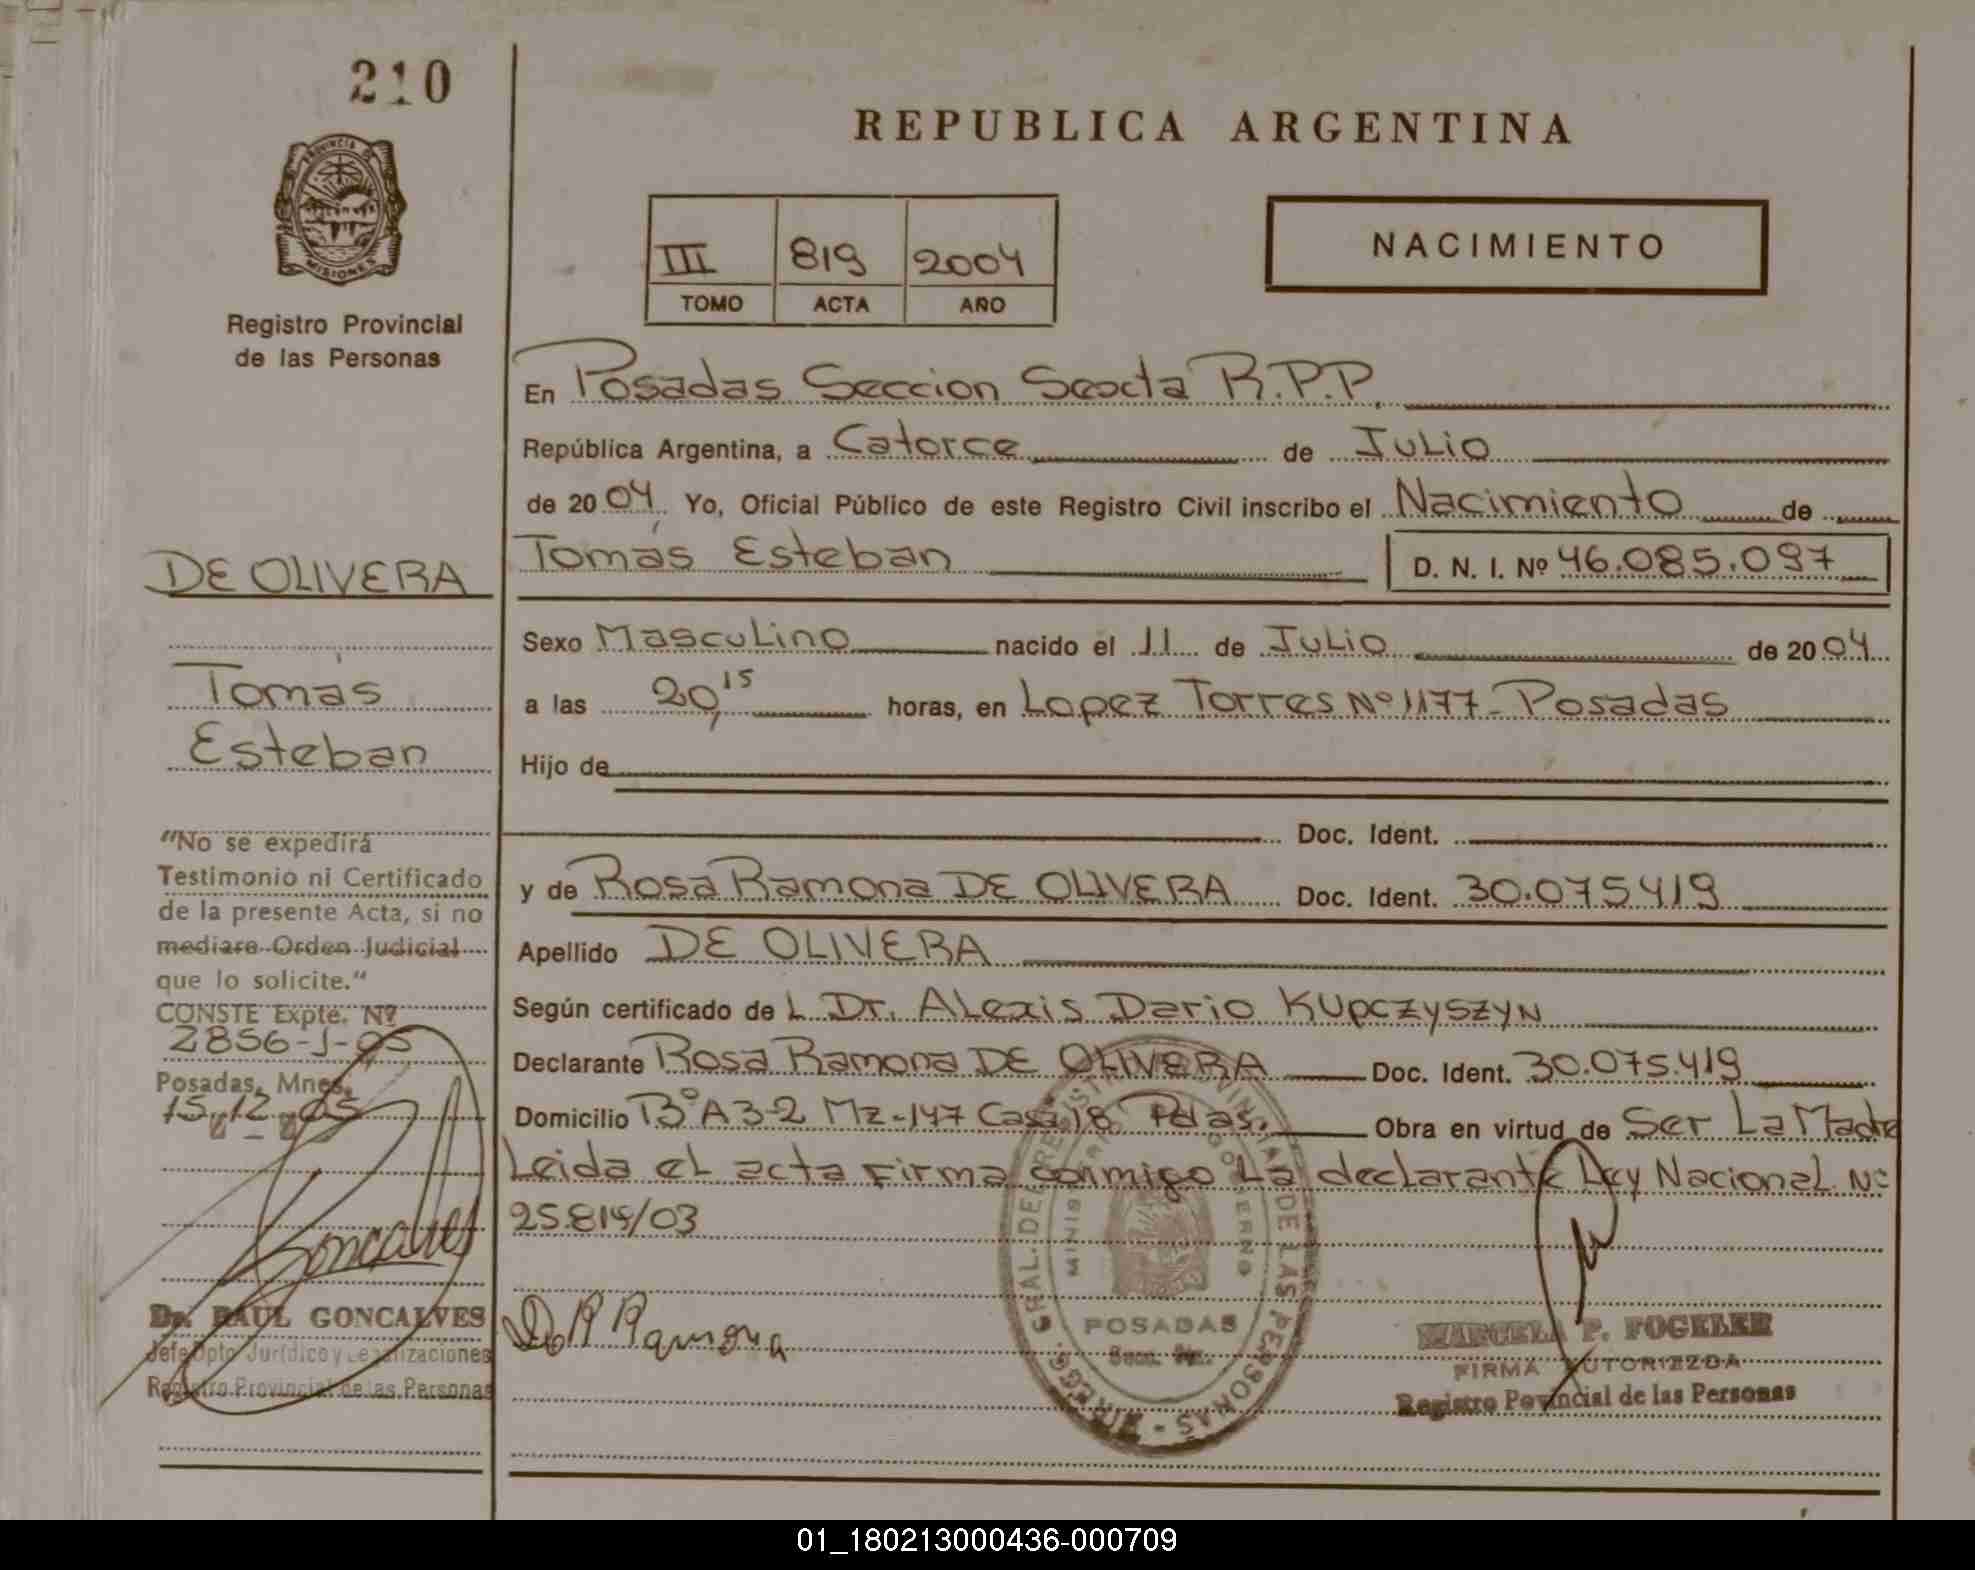 210
PROVINCIA DE
MISIONES
Registro Provincial
de las Personas
DE OLIVERA
Tomás
Esteban
"No se expedirá
Testimonio ni Certificado
de la presente Acta, si no
mediare Orden Judicial
que lo solicite."
CONSTE Expte. Nº
2856-J-05
Posadas, Mnes,
15.12.05
Goncalves
Dr. RAUL GONCALVES
Jefe Dpto Jurídico y Legalizaciones
Registro Provincial de las Personas
REPUBLICA ARGENTINA
III 819 2004
TOMO ACTA AÑO
NACIMIENTO
En Posadas Seccion Sexta R.P.P.
República Argentina, a Catorce de Julio
de 2004 Yo, Oficial Público de este Registro Civil inscribo el Nacimiento de
Tomás Esteban D. N. I. Nº 46.085.097
Sexo Masculino nacido el 11 de Julio de 2004
a las 20,15 horas, en Lopez Torres Nº 1177- Posadas
Hijo de
Doc. Ident.
y de Rosa Ramona DE OLIVERA Doc. Ident. 30.075419
Apellido DE OLIVERA
Según certificado de L Dr. Alexis Dario KUPCZYSZYN
Declarante Rosa Ramona DE OLIVERA Doc. Ident. 30.075.419
Domicilio Bº A3-2 Mz-147 Casa 18 Pdas. Obra en virtud de Ser La Madre
Leida el acta Firma conmigo La declarante Ley Nacional Nº
25.819/03
Ramona
POSADAS
MARCELA P. FOGELER
FIRMA AUTORIZZDA
Registro Povincial de las Personas
01_180213000436-000709